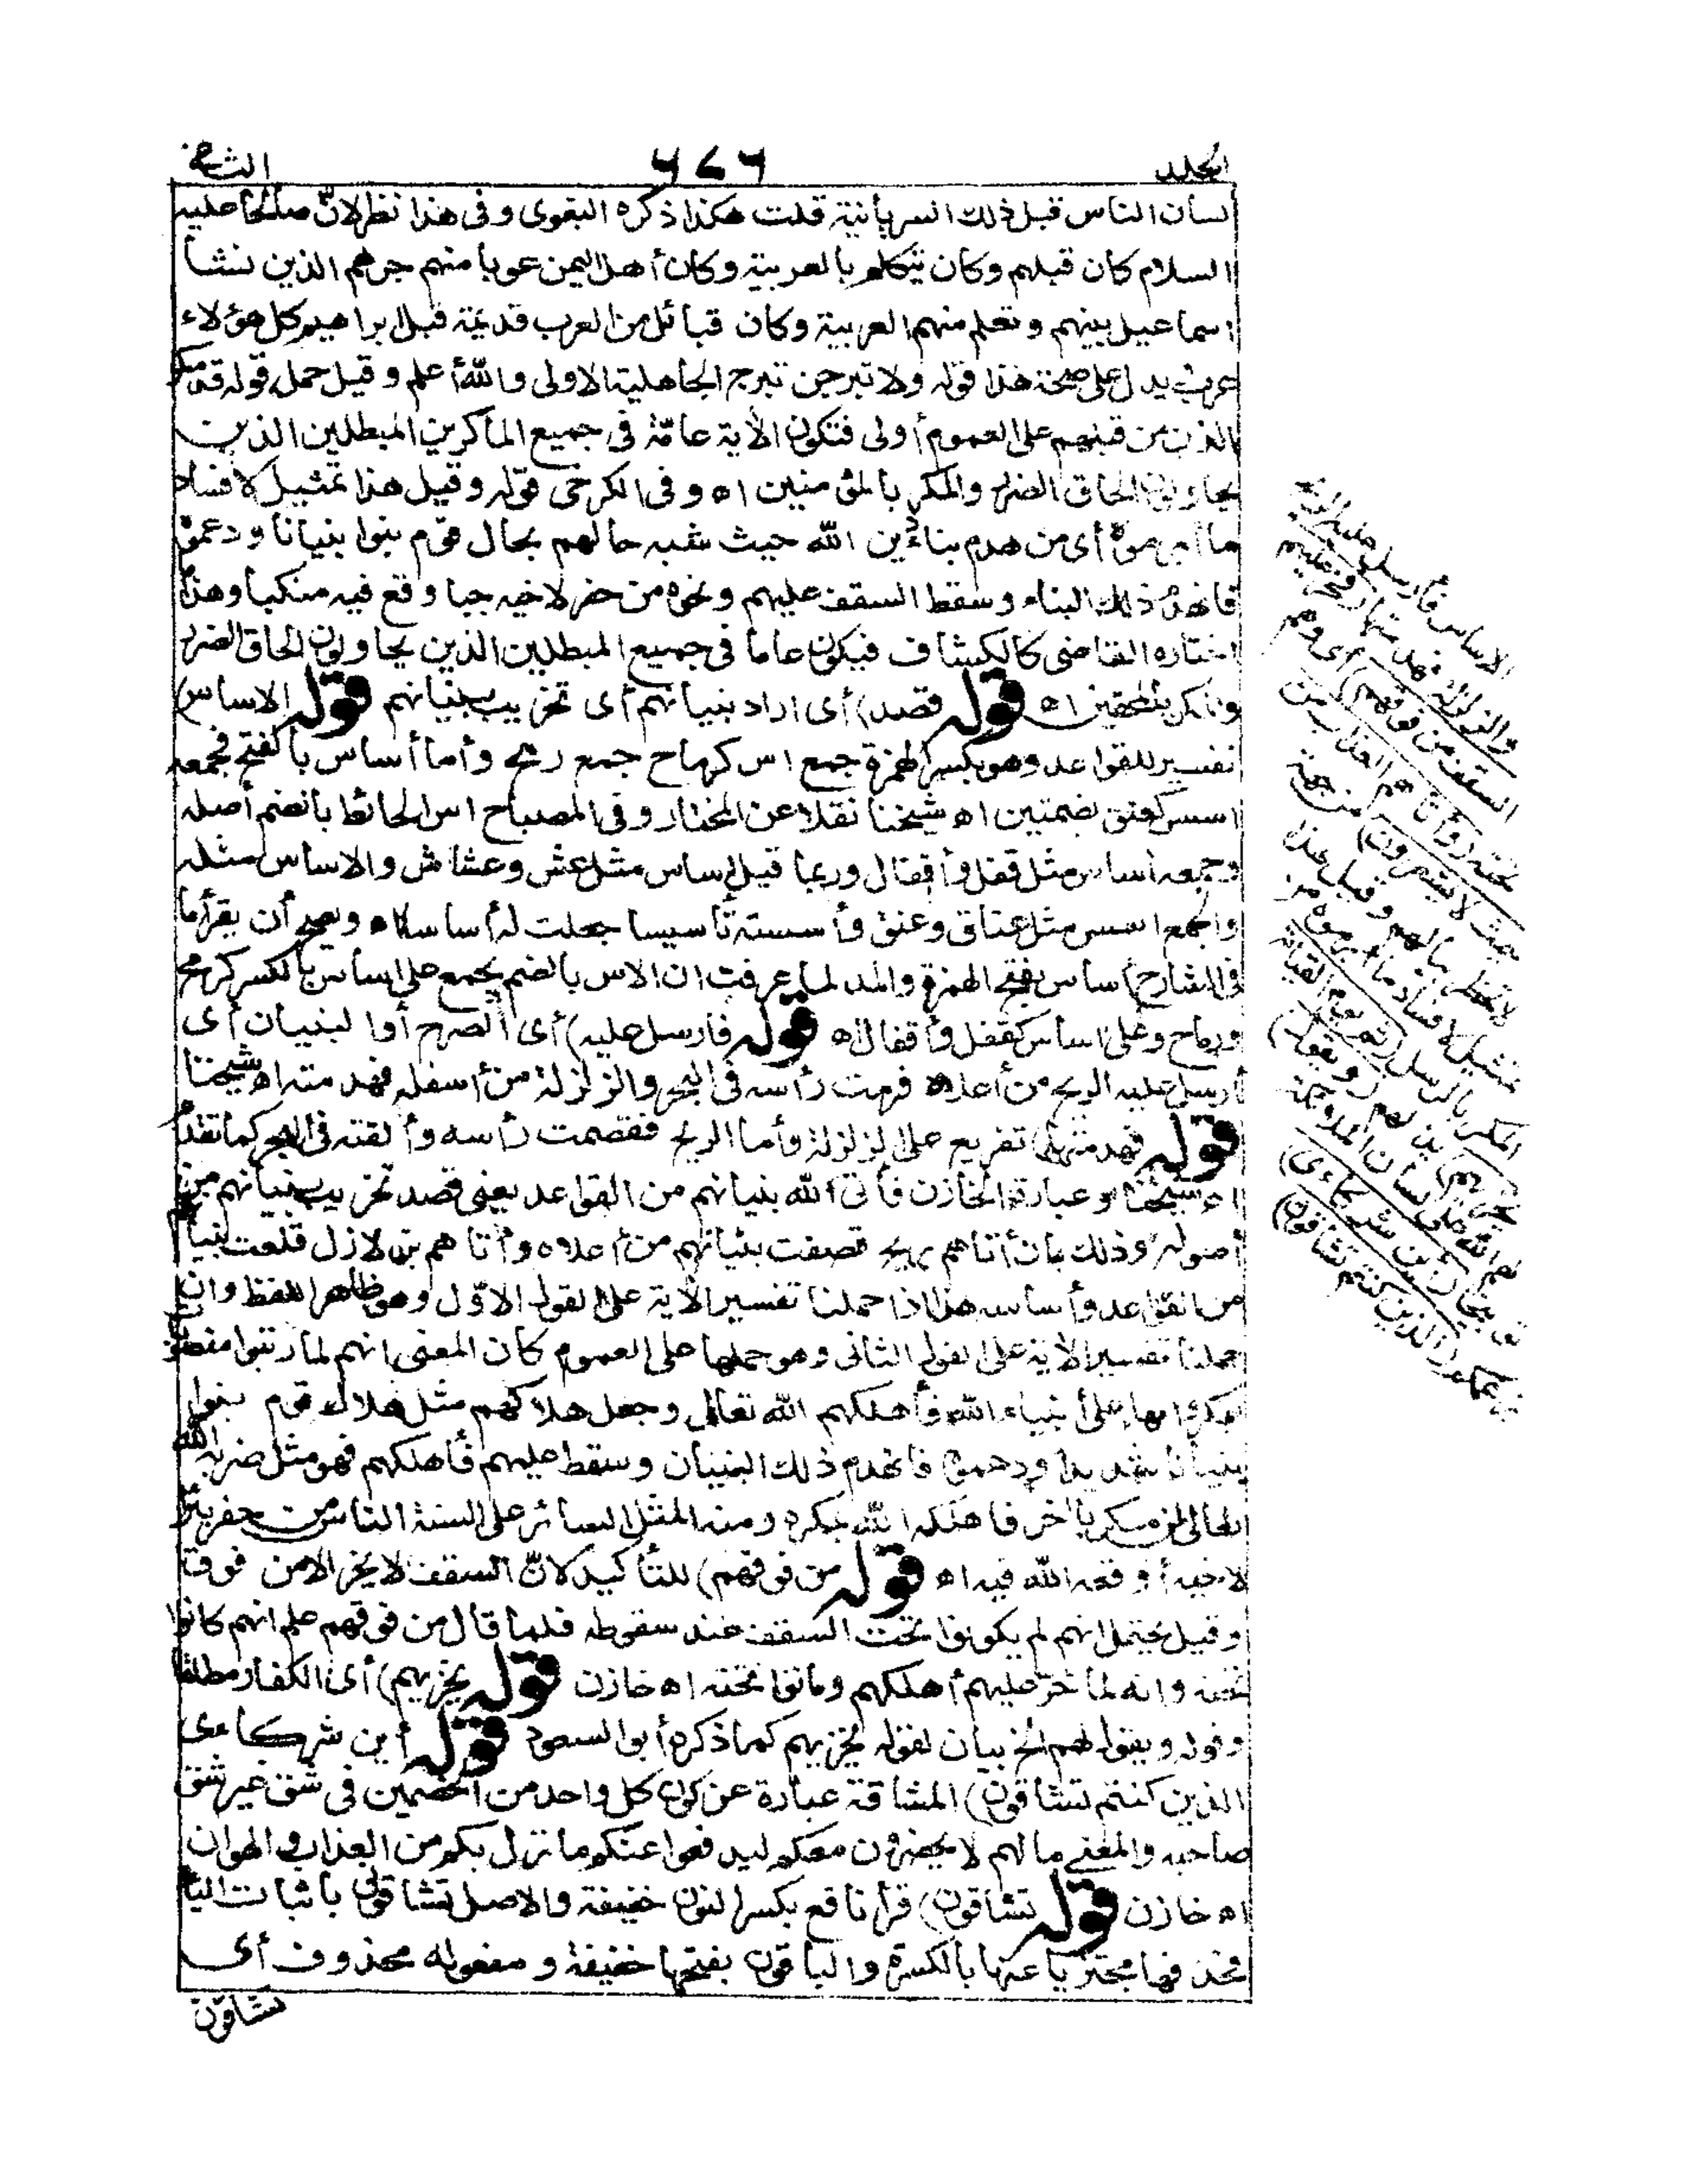 المجلد ٦٧٦ الثانى
لسان الناس قبل ذلك السريانية قلت هكذا ذكره البغوى وفى هذا نظر لانّ صالحا عليه
السلام كان قبلهم وكان يتكلم بالعربية وكان أهل اليمن عربا منهم جرهم الذين نشأ
اسماعيل بينهم وتعلم منهم العربية وكان قبائل من العرب قديمة قبل ابراهيم كل هؤلاء
عرب يدل على صحة هذا قوله ولا تبرجن تبرج الجاهلية الاولى والله أعلم وقيل حمل قوله قد مكر
الذين من قبلهم على العموم أولى فتكون الآية عامّة فى جميع الماكرين المبطلين الذين
يحاولون الحاق الضرر والمكر بالمؤمنين اه وفى الكرخى قوله وقيل هذا تمثيل لافساد
ما أبرموه أى من هدم بناء دين الله حيث شبه حالهم بحال قوم بنوا بنيانا ودعموه
فانهدم ذلك البناء وسقط السقف عليهم ونحوه من حفر لاخيه جبا وقع فيه منكبا وهذا
اختاره القاضى كالكشاف فيكون عاما فى جميع المبطلين الذين يحاولون الحاق الضرر
والمكر بالمحقين اه قوله قصد) أى اراد بنيانهم أى تخريب بنيانهم قوله الاساس)
تفسير للقواعد وهو بكسر الهمزة جمع اس كرماح جمع رمح وأما أساس بالفتح فجمعه
اسس كعنق بضمتين اه شيخنا نقلا عن المختار وفى المصباح اس الحائط بالضم أصله
وجمعه آساس مثل قفل وأقفال وربما قيل إساس مثل عش وعشاش والاساس مثله
والجمع اسس مثل عناق وعنق وأسسته تأسيسا جعلت له أساسا اه ويصح أن يقرأ ما
فى الشارح آساس بفتح الهمزة والمد لما عرفت ان الاس بالضم يجمع على إساس بالكسر كرمح
ورماح وعلى اساس كقفل وأقفال اه قوله فأرسل عليه) أى الصرح أو البنيان أى
أرسل عليه الريح من أعلاه فرمت رأسه فى البحر والزلزلة من أسفله فهدمته اه شيخنا
قوله فهدمتها) تفريع على الزلزلة وأما الريح فقصمت رأسه وألقته فى البحر كما تقدّم
اه شيخنا وعبارة الخازن فأتى الله بنيانهم من القواعد يعنى قصد تخريب بنيانهم من
أصوله وذلك بان أتاهم بريح قصفت بنيانهم من أعلاه وأتاهم بزلازل قلعت بنيانهم
من القواعد وأساسه هذا اذا حملنا تفسير الآية على القول الاوّل وهو ظاهر اللفظ وان
حملنا تفسير الآية على القول الثانى وهو حملها على العموم كان المعنى انهم لما رتبوا منصوبات
مكروا بها على أنبياء الله فأهلكهم الله تعالى وجعل هلاكهم مثل هلاك قوم بنوا
بنيانا شديدا ودعموه فانهدم ذلك البنيان وسقط عليهم فأهلكهم فهو مثل ضربه الله
تعالى لمن مكر بآخر فاهلكه الله بمكره ومنه المثل السائر على السنة الناس من حفر بئرا
لاخيه أوقعه الله فيه اه قوله من فوقهم) للتأكيد لانّ السقف لا يخر الا من فوق
وقيل يحتمل انهم لم يكونوا تحت السقف عند سقوطه فلما قال من فوقهم علم انهم كانوا
تحته وانه لما خرّ عليهم أهلكهم وماتوا تحته اه خازن قوله يخزيهم) أى الكفار مطلقا
وقوله ويقول لهم الخ بيان لقوله يخزيهم كما ذكره أبو السعود قوله أين شركاءى
الذين كنتم تشاقون) المشاقة عبارة عن كون كل واحد من الخصمين فى شق غير شق
صاحبه والمعنى ما لهم لا يحضرون معكم ليدفعوا عنكم ما نزل بكم من العذاب والهوان
اه خازن قوله تشاقون) قرأ نافع بكسر النون خفيفة والاصل تشاقونى باثبات الياء
فحذفها مجتزيا عنها بالكسرة والباقون بفتحها خفيفة ومفعوله محذوف أى
تشاقون
الاساس فأرسل عليه الريح
والزلزلة فهدمتها (فخر عليهم
السقف من فوقهم) أى وهم
تحته (وأتاهم العذاب من
حيث لا يشعرون) من جهة
لا تخطر ببالهم وقيل هذا
تمثيل لافساد ما أبرموه من
المكر بالرسل (ثم يوم القيامة
يخزيهم) يذلهم (ويقول)
لهم الله على لسان الملائكة
توبيخا (أين شركاءى)
بزعمكم (الذين كنتم تشاقون)